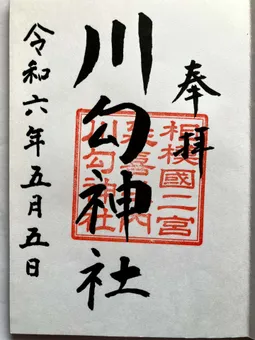 奉拝
川勾神社
相模國二宮
延喜式内
川勾神社
令和六年五月五日